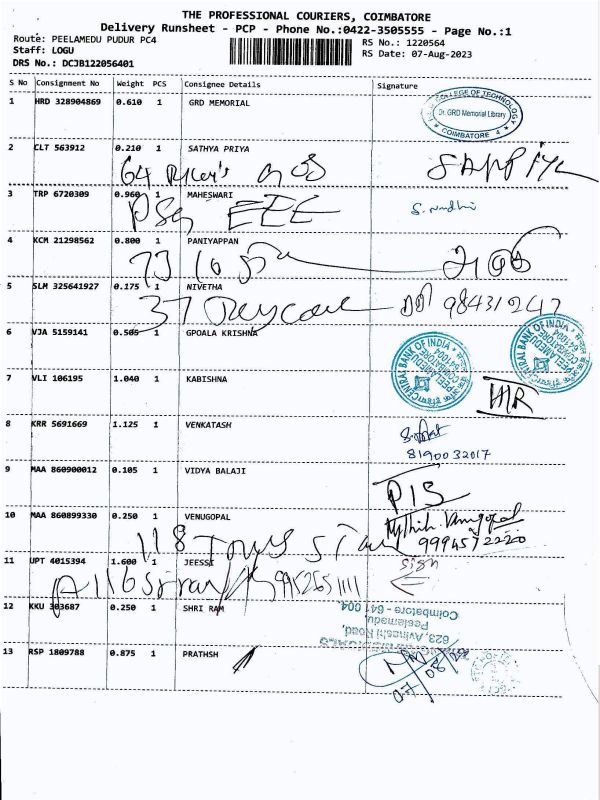 THE PROFESSIONAL COURIERS, COIMBATORE
Delivery Runsheet - PCP - Phone No.:0422-3505555 - Page No.:1
Route: PEELAMEDU PUDUR PC4
RS No.: 1220564
Staff: LOGU
RS Date: 07-Aug-2023
DRS No.: DCJB122056401
S No Consignment No Weight PCS Consignee Details Signature
1 HRD 328904869 0.610 1 GRD MEMORIAL
COLLEGE OF TECHNOLOGY
Dr. GRD Memorial Library
COIMBATORE 4
2 CLT 563912 0.210 1 SATHYA PRIYA
64
3 TRP 6720309 0.960 1 MAHESWARI
PSG EEE
4 KCM 21298562 0.800 1 PANIYAPPAN
73 16
5 SLM 325641927 0.175 1 NIVETHA
37
6 VJA 5159141 0.565 1 GPOALA KRISHNA
CENTRAL BANK OF INDIA
PEELAMEDU
COIMBATORE
641-004
CENTRAL BANK OF INDIA
PEELAMEDU
COIMBATORE
641-004
7 VLI 106195 1.040 1 KABISHNA
8 KRR 5691669 1.125 1 VENKATASH
8190032017
9 MAA 860900012 0.105 1 VIDYA BALAJI
10 MAA 860899330 0.250 1 VENUGOPAL
Venugopal
118
11 UPT 4015394 1.600 1 JEESSI
sign
A116
12 KKU 303687 0.250 1 SHRI RAM
623, Avinashi Road,
Peelamedu,
Coimbatore - 641 004.
13 RSP 1809788 0.875 1 PRATHSH